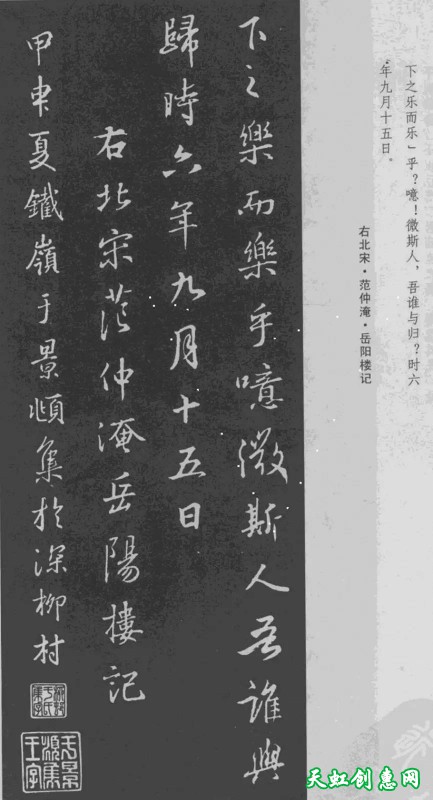 下之乐而乐」乎？噫！微斯人，吾谁与归？时六
年九月十五日。
右北宋·范仲淹·岳阳楼记
下之樂而樂乎噫微斯人吾誰與
歸時六年九月十五日
右北宋范仲淹岳陽樓記
甲申夏鐵嶺于景頫集於深柳村
天虹创惠网